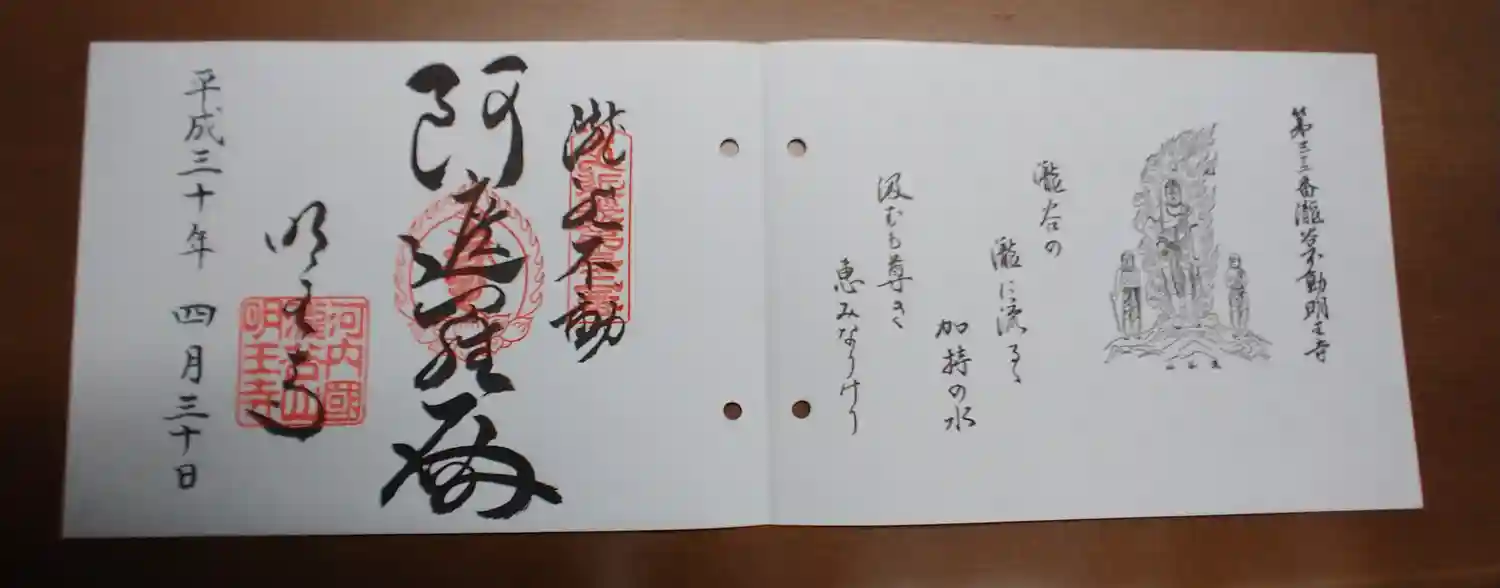 第三三番瀧谷不動明王寺
瀧谷の
瀧に流るゝ
加持の水
汲むも尊き
恵みなりけり
瀧谷不動
阿遮羅殿
明王寺
河内國
瀧谷山
明王寺
平成三十年 四月三十日